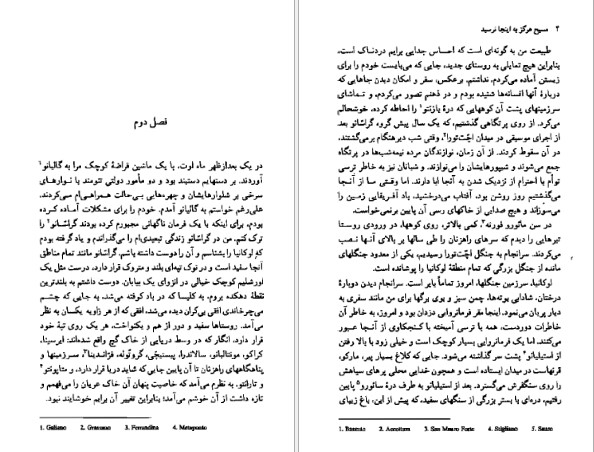 ۴ مسیح هرگز به اینجا نرسید
طبیعت من به گونه‌ای است که احساس جدایی برایم دردناک است،
بنابراین هیچ تمایلی به روستای جدید، جایی که می‌بایست خودم را برای
زیستن آماده می‌کردم، نداشتم. برعکس، سفر و امکان دیدن جاهایی که
دربارهٔ آنها افسانه‌ها شنیده بودم و در ذهنم تصور می‌کردم، و تماشای
سرزمینهای پشت آن کوههایی که درهٔ بازنتو۱ را احاطه کرده، خوشحالم
می‌کرد. از روی پرتگاهی گذشتیم، که یک سال پیش گروه گراشانو بعد
از اجرای موسیقی در میدان اچتّورا۲، وقتی شب دیرهنگام برمی‌گشتند،
در آن سقوط کردند. از آن زمان، نوازندگان مرده نیمه‌شب‌ها در پرتگاه
جمع می‌شوند و شیپورهایشان را می‌نوازند؛ و شبانان نیز به خاطر ترسی
توأم با احترام از نزدیک شدن به آنجا ابا دارند. اما وقتی ما از آنجا
می‌گذشتیم روز روشن بود. آفتاب می‌درخشید، باد آفریقایی زمین را
می‌سوزاند و هیچ صدایی از خاکهای رسی آن پایین برنمی‌خواست.
در سن مائورو فورته۳، کمی بالاتر، روی کوهها، در ورودی روستا
تیرهایی را دیدم که سرهای راهزنان را طی سالها بر بالای آنها نصب
می‌کردند. سرانجام به جنگل اچتّورا رسیدیم، یکی از معدود جنگلهای
مانده از جنگل بزرگی که تمام منطقهٔ لوکانیا را پوشانده است.
لوکانیا، سرزمین جنگلها، امروز تماماً بایر است. سرانجام دیدن دوبارهٔ
درختان، شادابی بوته‌ها، چمن سبز و بوی برگها برای من مانند سفری به
دیار پریان می‌نمود. اینجا مقر فرمانروایی دزدان بود و امروز، به خاطر آن
خاطرات دوردست، همه با ترسی آمیخته با کنجکاوی از آنجا عبور
می‌کنند. اما یک فرمانروایی بسیار کوچک است و خیلی زود با بالا رفتن
از استیلیانو۴ پشت سر گذاشته می‌شود. جایی که کلاغ بسیار پیر، مارکو،
قرنهاست در میدان ایستاده است و همچون خدایی محلی پرهای سیاهش
را روی سنگفرش می‌گسترد. بعد از استیلیانو به طرف درهٔ سائورو۵ پایین
رفتیم، دره‌ای با بستر بزرگی از سنگهای سفید، که پیش از این، باغ زیبای
1. Basento 2. Accettura 3. San Mauro Forte 4. Stigliano 5. Sauro
فصل دوم
در یک بعدازظهر ماه اوت، با یک ماشین قراضهٔ کوچک مرا به گالیانو۱
آوردند. بر دستهایم دستبند بود و دو مأمور دولتی تنومند با نوارهای
سرخی بر شلوارهایشان و چهره‌هایی بی‌حالت همراهی‌ام می‌کردند.
علی‌رغم خواستم به گالیانو آمدم. خودم را برای مشکلات آماده کرده
بودم، برای اینکه با یک فرمان ناگهانی مجبورم کرده بودند گراشانو۲ را
ترک کنم. من در گراشانو زندگی تبعیدی‌ام را می‌گذراندم و یاد گرفته بودم
کم لوکانیا را بشناسم و آن را دوست داشته باشم. گراشانو مانند تمام مناطق
آنجا سفید است و در نوک تپه‌ای بلند و متروک قرار دارد، درست مثل یک
اورشلیم کوچک خیالی در انزوای یک بیابان. دوست داشتم به بلندترین
نقطهٔ دهکده بروم، به کلیسا که در باد کوفته می‌شد، به جایی که چشم
می‌چرخاندی افقی بی‌کران دیده می‌شد، افقی که از هر زاویه یکسان به نظر
می‌آمد. روستاها سفید و دور از هم و یکنواخت، هر یک روی تپهٔ خود
قرار دارد، انگار که در وسط دریایی از خاک گچ واقع شده‌اند: ایرسینا،
کراکو، مونتالبانو، سالاندرا، پیستیچّی، گروتّوله، فرّاندینا۳، سرزمینها و
پناهگاههای راهزنان تا آن پایین جایی که شاید دریا قرار دارد، و متاپونتو۴
و تارانتو. به نظرم می‌آمد که خاصیت پنهان آن خاک عریان را می‌فهمم و
تازه داشت از آن خوشم می‌آمد؛ بنابراین تغییر آن برایم خوشایند نبود.
1. Galiano 2. Grassano 3. Ferrandina 4. Metaponto